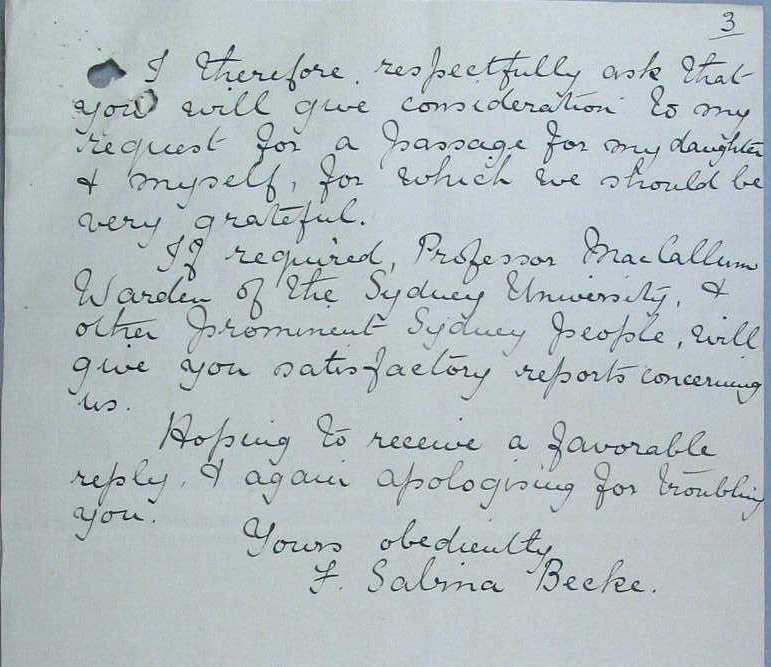 3
I therefore respectfully ask that
you will give consideration to my
request for a passage for my daughter
& myself, for which we should be
very grateful.
If required, Professor MacCallum
Warden of the Sydney University, &
other prominent Sydney people, will
give you satisfactory reports concerning
us.
Hoping to receive a favorable
reply, & again apologising for troubling
you.
Yours obediently
F. Sabina Becke.